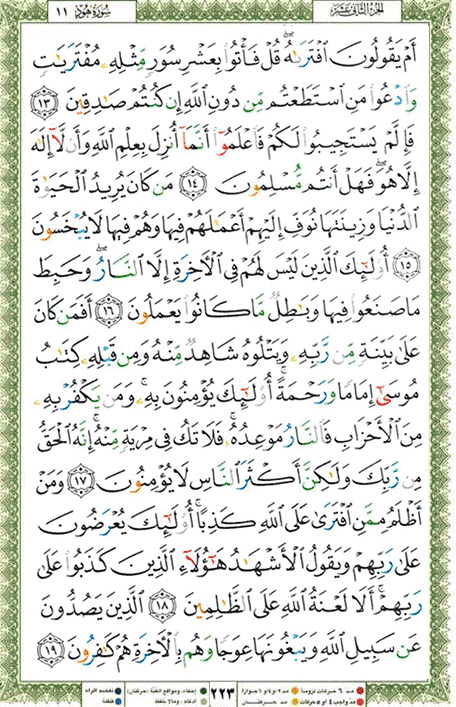 الجزء الثاني عشر
سورة هود ١١
أَمْ يَقُولُونَ ٱفْتَرَىٰهُ ۖ قُلْ فَأْتُوا۟ بِعَشْرِ سُوَرٍ مِّثْلِهِۦ مُفْتَرَيَٰتٍ
وَٱدْعُوا۟ مَنِ ٱسْتَطَعْتُم مِّن دُونِ ٱللَّهِ إِن كُنتُمْ صَٰدِقِينَ ١٣
فَإِلَّمْ يَسْتَجِيبُوا۟ لَكُمْ فَٱعْلَمُوٓا۟ أَنَّمَآ أُنزِلَ بِعِلْمِ ٱللَّهِ وَأَن لَّآ إِلَٰهَ
إِلَّا هُوَ ۖ فَهَلْ أَنتُم مُّسْلِمُونَ ١٤ مَن كَانَ يُرِيدُ ٱلْحَيَوٰةَ
ٱلدُّنْيَا وَزِينَتَهَا نُوَفِّ إِلَيْهِمْ أَعْمَٰلَهُمْ فِيهَا وَهُمْ فِيهَا لَا يُبْخَسُونَ
١٥ أُو۟لَٰٓئِكَ ٱلَّذِينَ لَيْسَ لَهُمْ فِى ٱلْأَخِرَةِ إِلَّا ٱلنَّارُ ۖ وَحَبِطَ
مَا صَنَعُوا۟ فِيهَا وَبَٰطِلٌ مَّا كَانُوا۟ يَعْمَلُونَ ١٦ أَفَمَن كَانَ
عَلَىٰ بَيِّنَةٍ مِّن رَّبِّهِۦ وَيَتْلُوهُ شَاهِدٌ مِّنْهُ وَمِن قَبْلِهِۦ كِتَٰبُ
مُوسَىٰٓ إِمَامًا وَرَحْمَةً ۚ أُو۟لَٰٓئِكَ يُؤْمِنُونَ بِهِۦ ۚ وَمَن يَكْفُرْ بِهِۦ
مِنَ ٱلْأَحْزَابِ فَٱلنَّارُ مَوْعِدُهُۥ ۚ فَلَا تَكُ فِى مِرْيَةٍ مِّنْهُ ۚ إِنَّهُ ٱلْحَقُّ
مِن رَّبِّكَ وَلَٰكِنَّ أَكْثَرَ ٱلنَّاسِ لَا يُؤْمِنُونَ ١٧ وَمَنْ
أَظْلَمُ مِمَّنِ ٱفْتَرَىٰ عَلَى ٱللَّهِ كَذِبًا ۚ أُو۟لَٰٓئِكَ يُعْرَضُونَ
عَلَىٰ رَبِّهِمْ وَيَقُولُ ٱلْأَشْهَٰدُ هَٰٓؤُلَآءِ ٱلَّذِينَ كَذَبُوا۟ عَلَىٰ
رَبِّهِمْ ۚ أَلَا لَعْنَةُ ٱللَّهِ عَلَى ٱلظَّٰلِمِينَ ١٨ ٱلَّذِينَ يَصُدُّونَ
عَن سَبِيلِ ٱللَّهِ وَيَبْغُونَهَا عِوَجًا وَهُم بِٱلْأَخِرَةِ هُمْ كَٰفِرُونَ ١٩
٢٢٣